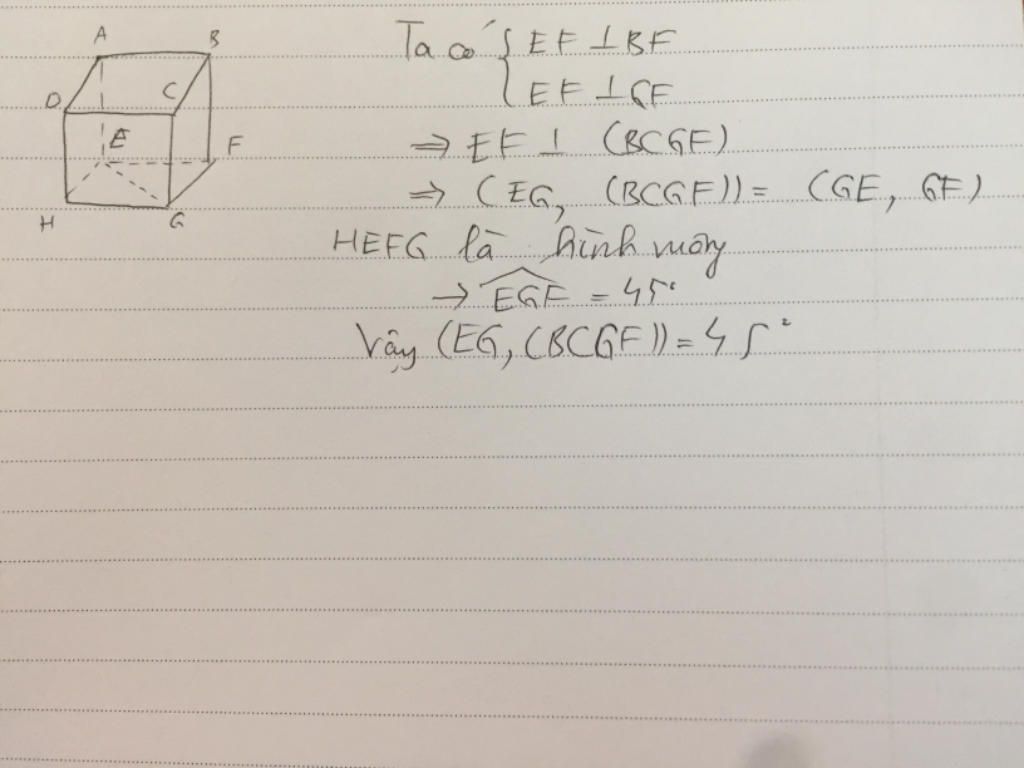 A B
D C
E F
H G
Ta có { EF ⊥ BF
EF ⊥ GF
⇒ EF ⊥ (BCGF)
⇒ (EG, (BCGF)) = (GE, GF)
HEFG là hình vuông
→ \widehat{EGF} = 45°
Vậy (EG, (BCGF)) = 45°